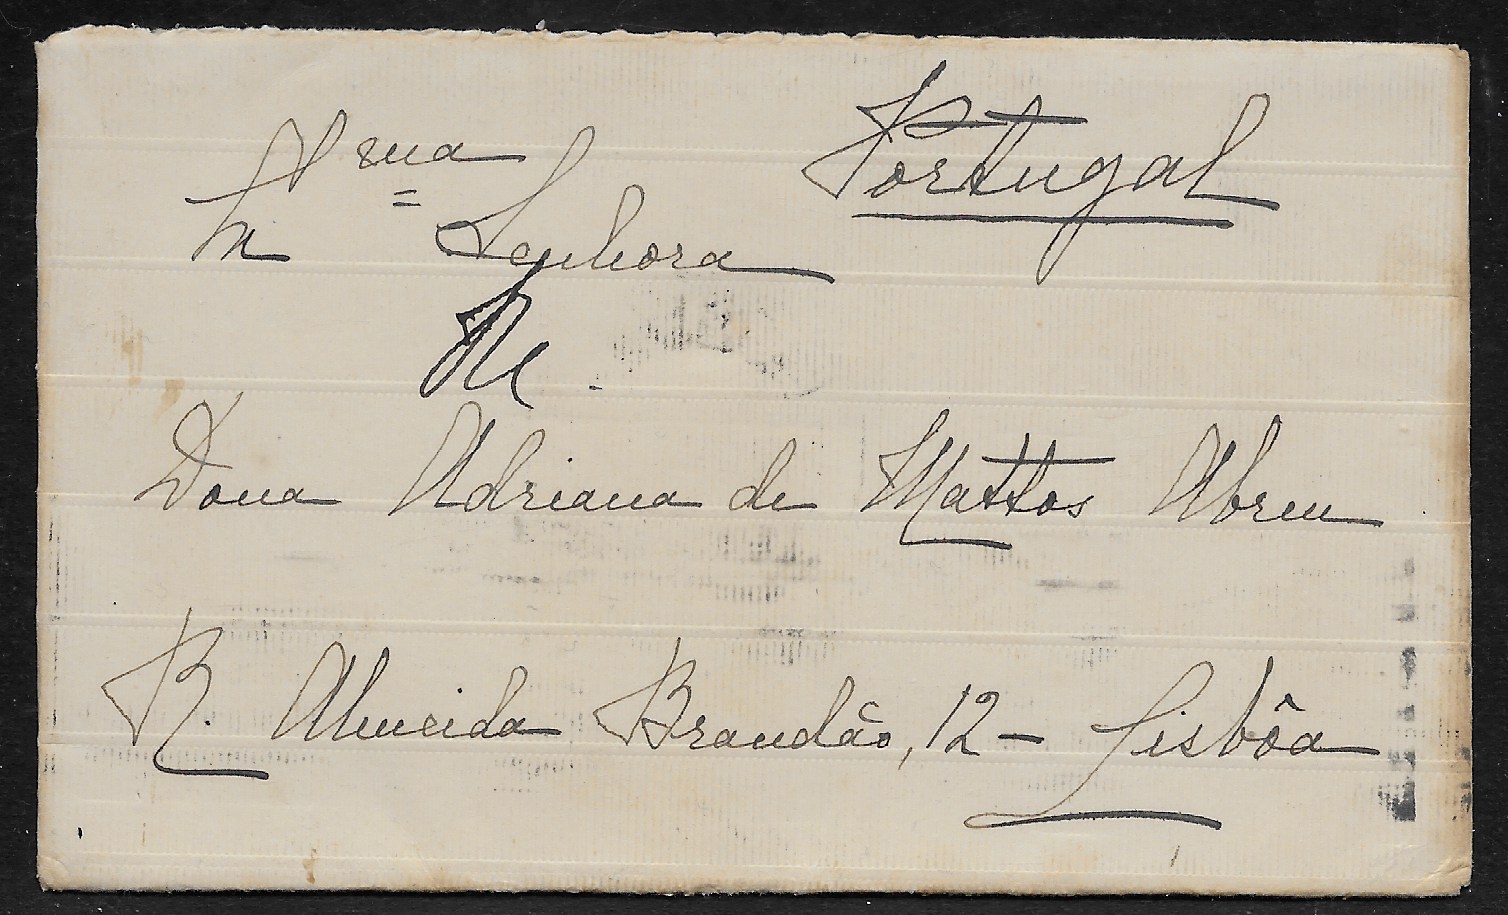 Portugal
Senhora
Dona Adriana de Mattos Abreu
R. Almeida Brandão, 12 – Lisbôa